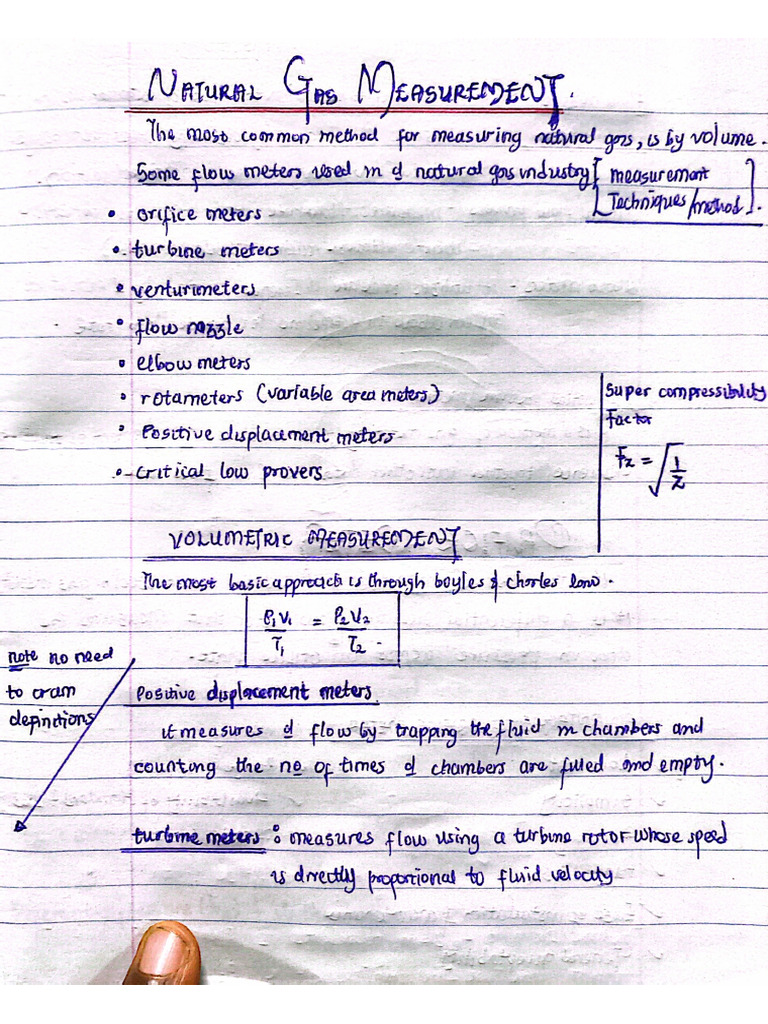 NATURAL GAS MEASUREMENT.
The most common method for measuring natural gas, is by volume.
Some flow meters used in d natural gas industry [measurement
Techniques/method].
• orifice meters
• turbine meters
• venturimeters
• flow nozzle
• elbow meters
• rotameters (variable area meters)
• Positive displacement meters
• critical low provers
Super compressibility
Factor
Fz = √1/Z
VOLUMETRIC MEASUREMENT
The most basic approach is through boyles & charles law.
P1V1/T1 = P2V2/T2
note no need
to cram
definctions
Positive displacement meters
it measures d flow by trapping the fluid in chambers and
counting the no of times d chambers are filled and empty.
turbine meters : measures flow using a turbine rotor whose speed
is directly proportional to fluid velocity